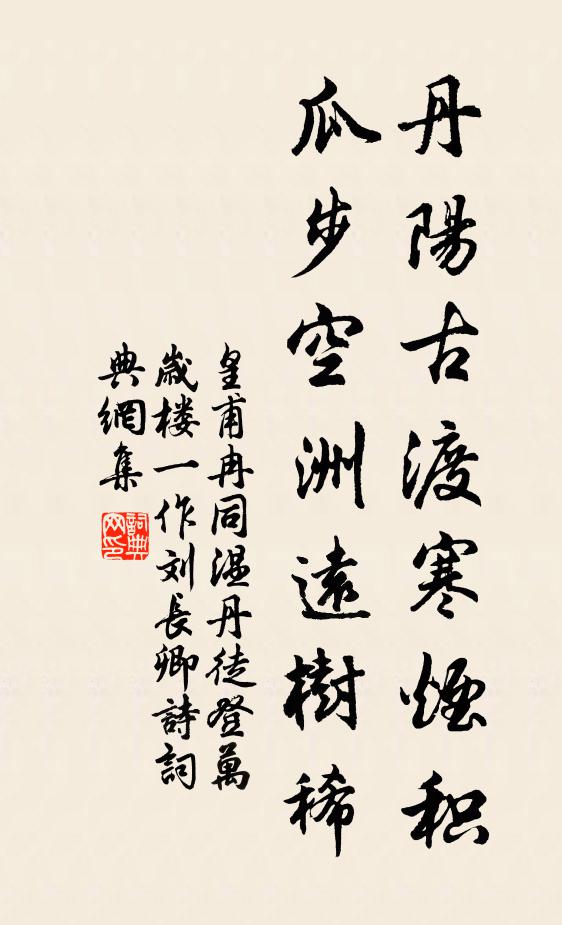 丹陽古渡寒煙积
瓜步空洲遠樹稀
皇甫冉同温丹徒登萬
歲楼一作刘長卿詩詞
典網集
詞典网印